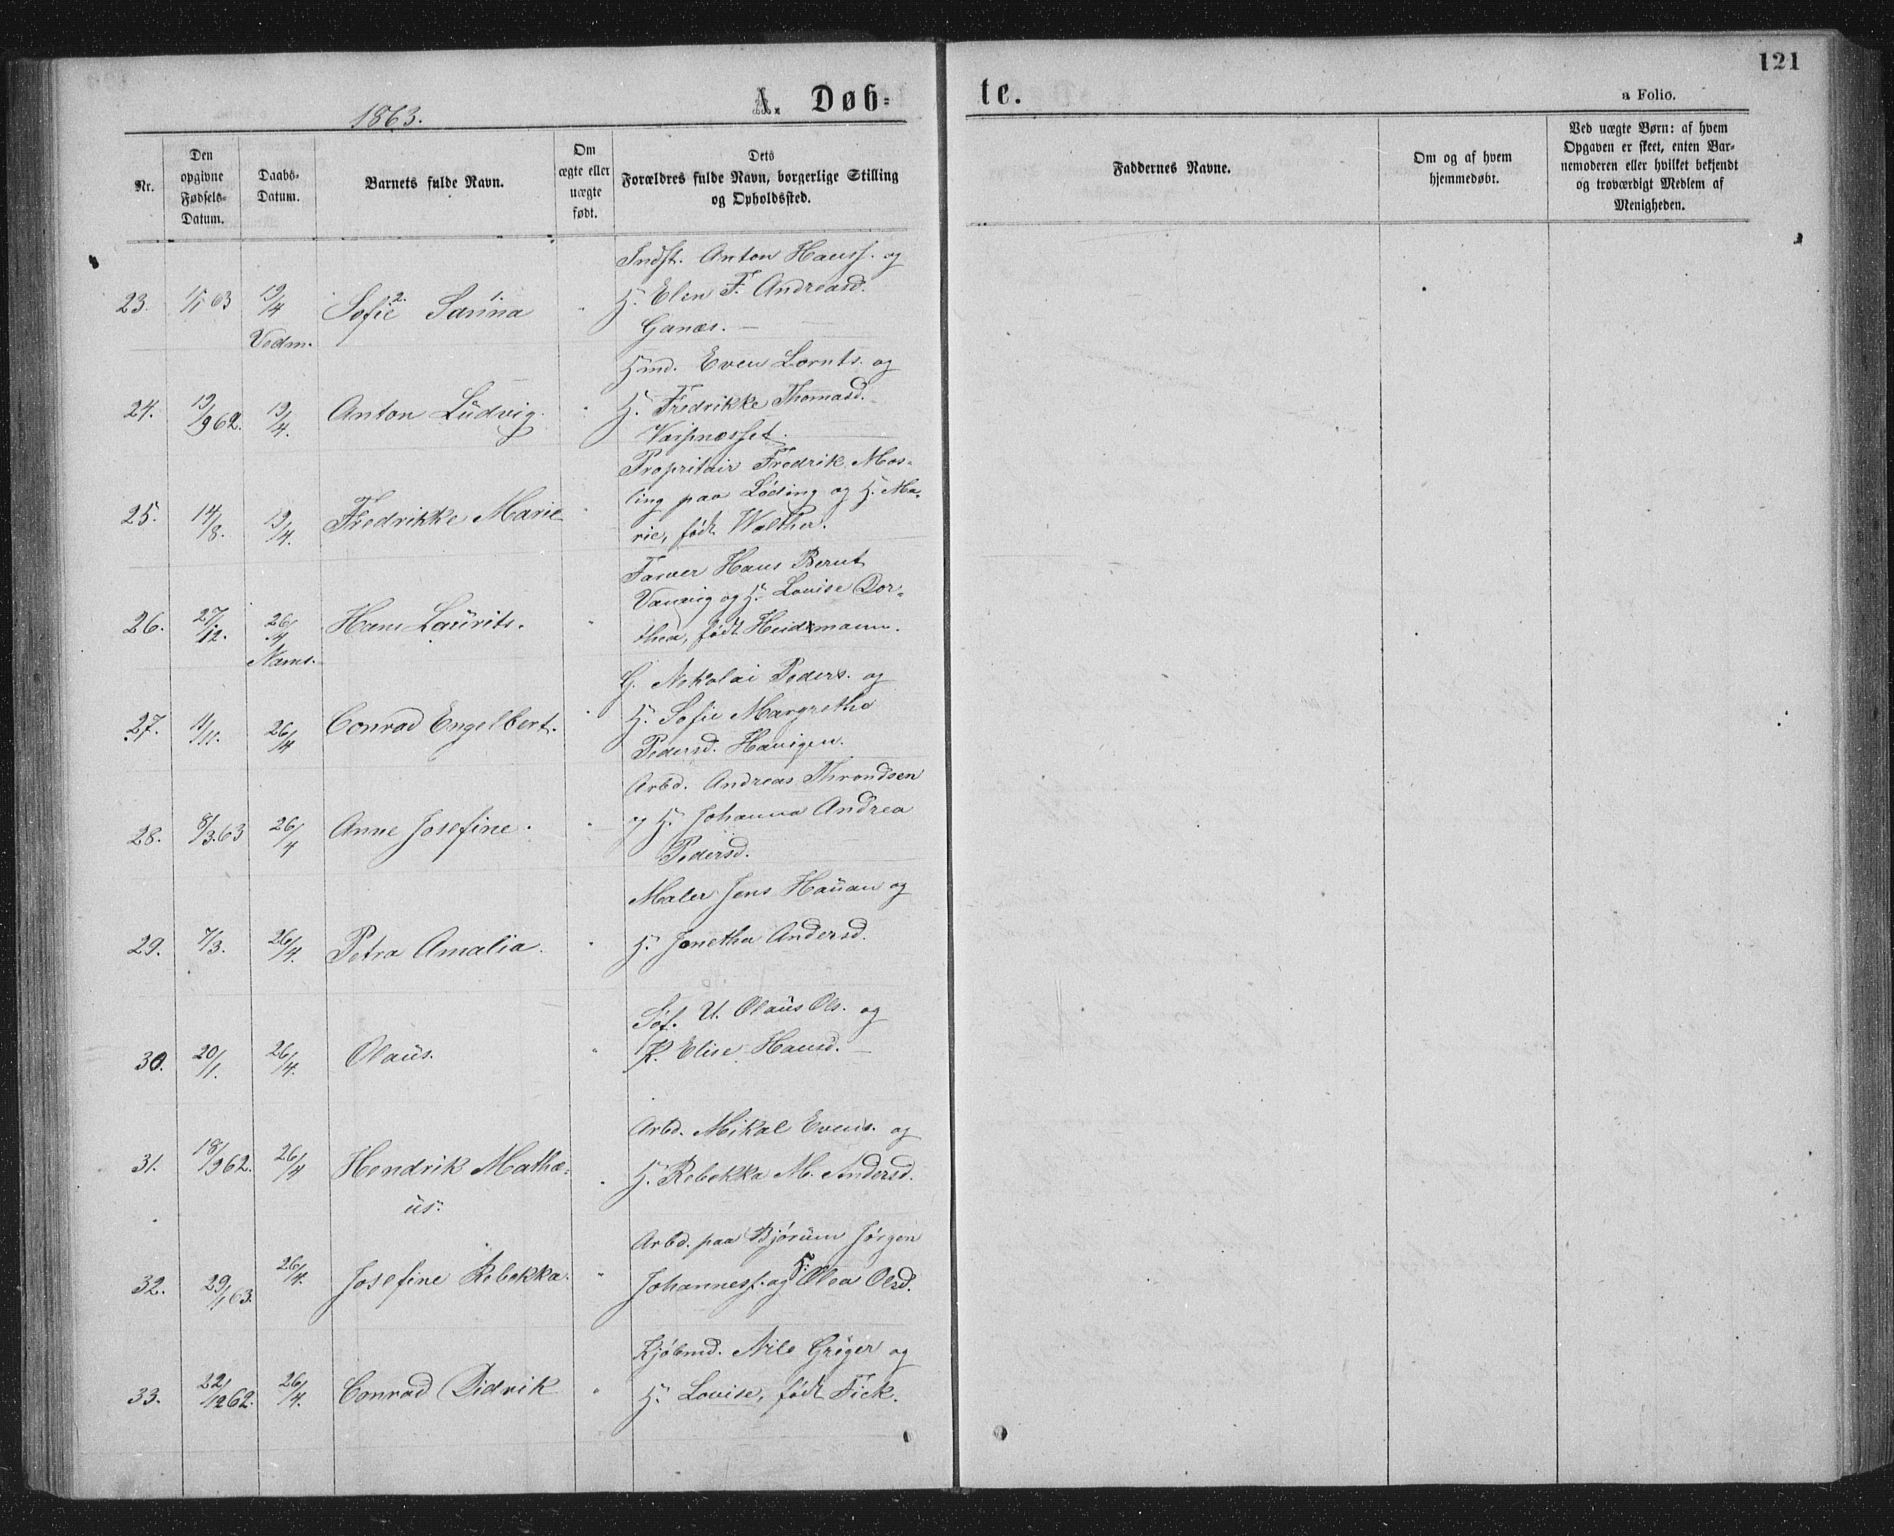 121
1863.
A. Døb-
te.
a Folio.
Nr.
Den
opgivne
Fødsels-
Datum.
Daabs-
Datum.
Barnets fulde Navn.
Om
ægte eller
uægte
født.
Dets
Forældres fulde Navn, borgerlige Stilling
og Opholdssted.
Faddernes Navne.
Om og af hvem
hjemmedøbt.
Ved uægte Børn: af hvem
Opgaven er skeet, enten Bar-
nemoderen eller hvilket bekjendt
og troværdigt Medlem af
Menigheden.
Indst. Anton Hanss. og
23. 1/1 63 19/4 Sofie 2. Sarina 1. " H. Elen F. Andreasd.
Vedm. Ganæs. —
Hmd. Even Lornts. og
24. 19/9 62. 19/4. Anton Ludvig. " H. Fredrikke Thomasd.
Varpnæsset.
Propritair Fredrik Mos-
25. 14/8. 19/4. Fredrikke Marie " ling paa Løding og H. Ma-
rie, født Walther.
Farver Hans Bernt
26. 27/12. 26/4 Hans Laurits. " Vanvig og H. Lovise Dor-
Nams. thea, født Heidmann.
G. Nikolai Peders. og
27. 11/11. 26/4 Conrad Engelbert. " H. Sofie Margrethe
Pedersd. Havigen.
Arbd. Andreas Throndsen
28. 8/3. 63 26/4 Anne Josefine. " og H. Johanna Andrea
Pedersd.
Maler Jens Hauan og
29. 7/3. 26/4. Petra Amalia. " H. Jonetha Andersd.
Søf. U. Olaus Ols. og
30. 20/1. 26/4. Olaus. " P. Elise Hansd. —
Arbd. Mikal Evens. og
31. 18/9 62. 26/4 Hendrik Mathæ- " H. Rebekka M. Andersd.
us.
Arbd. paa Bjørum Jørgen
32. 29/1 63. 26/4. Josefine Rebekka. " Johanness. og H. Olea Olsd.
Kjøbmd. Nils Grøger og
33. 22/12 62. 26/4. Conrad Didrik " H. Lovise, født Fick.